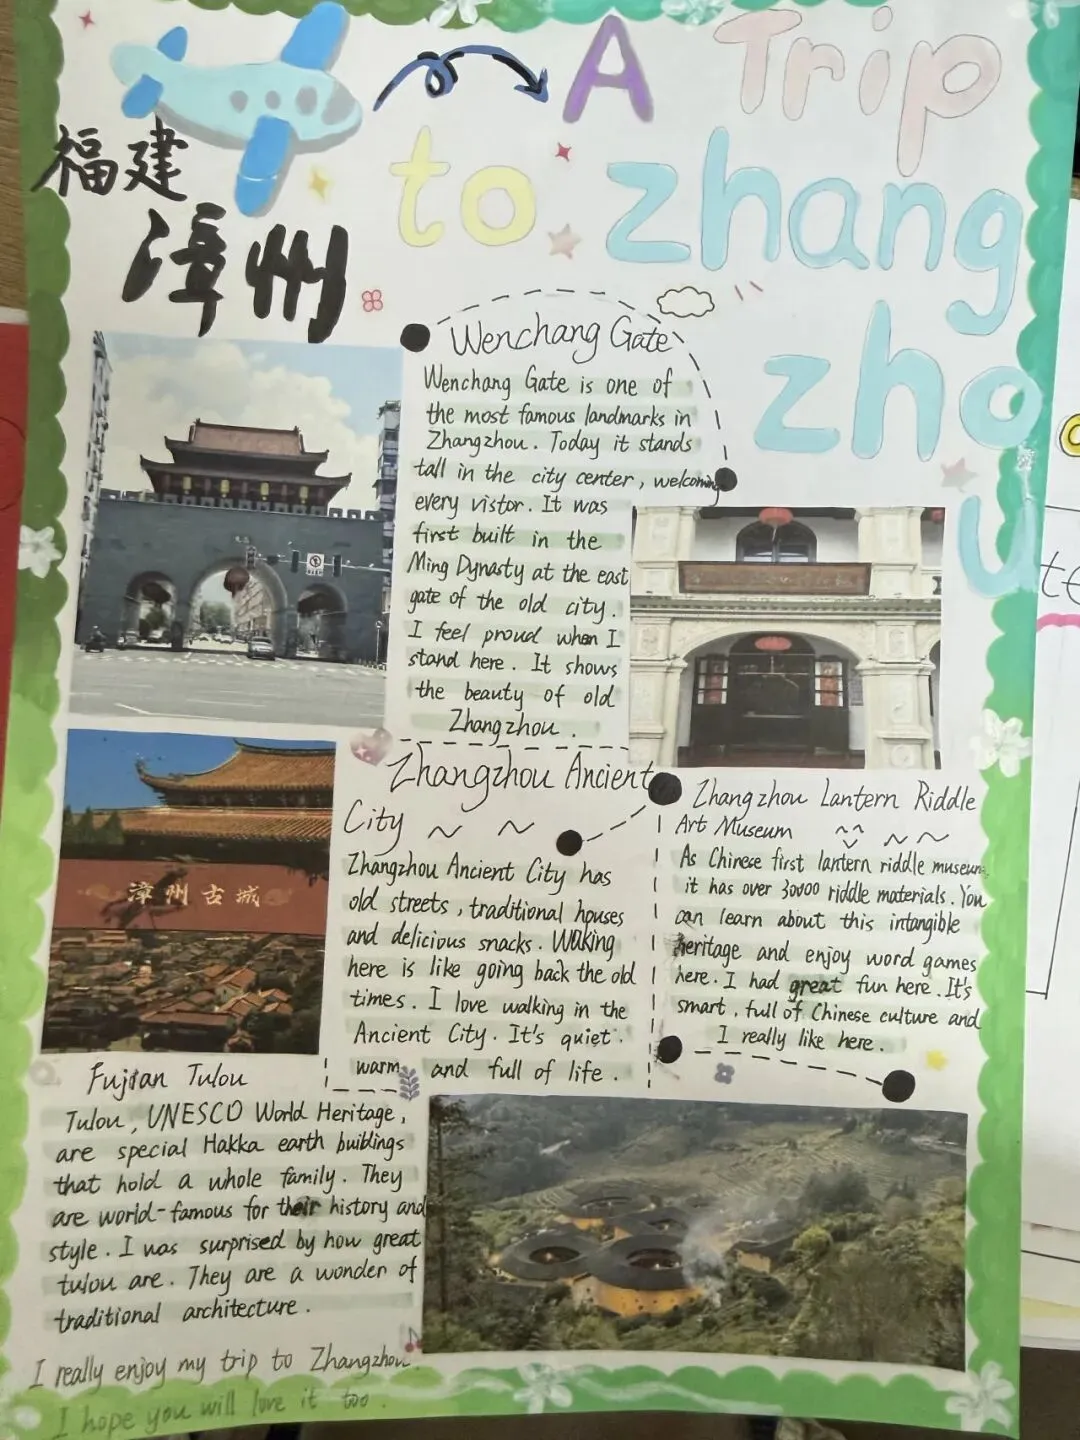 A Trip
to zhang
zho
u
福建
漳州
Wenchang Gate
Wenchang Gate is one of
the most famous landmarks in
Zhangzhou. Today it stands
tall in the city center, welcoming
every vistor. It was
first built in the
Ming Dynasty at the east
gate of the old city.
I feel proud when I
stand here. It shows
the beauty of old
Zhangzhou.
漳州古城
Zhangzhou Ancient
City
Zhangzhou Ancient City has
old streets, traditional houses
and delicious snacks. Walking
here is like going back the old
times. I love walking in the
Ancient City. It's quiet.
warm and full of life.
Zhangzhou Lantern Riddle
Art Museum
As Chinese first lantern riddle museum,
it has over 30000 riddle materials. You
can learn about this intangible
heritage and enjoy word games
here. I had great fun here. It's
smart, full of Chinese culture and
I really like here.
Fujian Tulou
Tulou, UNESCO World Heritage,
are special Hakka earth buildings
that hold a whole family. They
are world-famous for their history and
style. I was surprised by how great
tulou are. They are a wonder of
traditional architecture.
I really enjoy my trip to Zhangzhou.
I hope you will love it too.